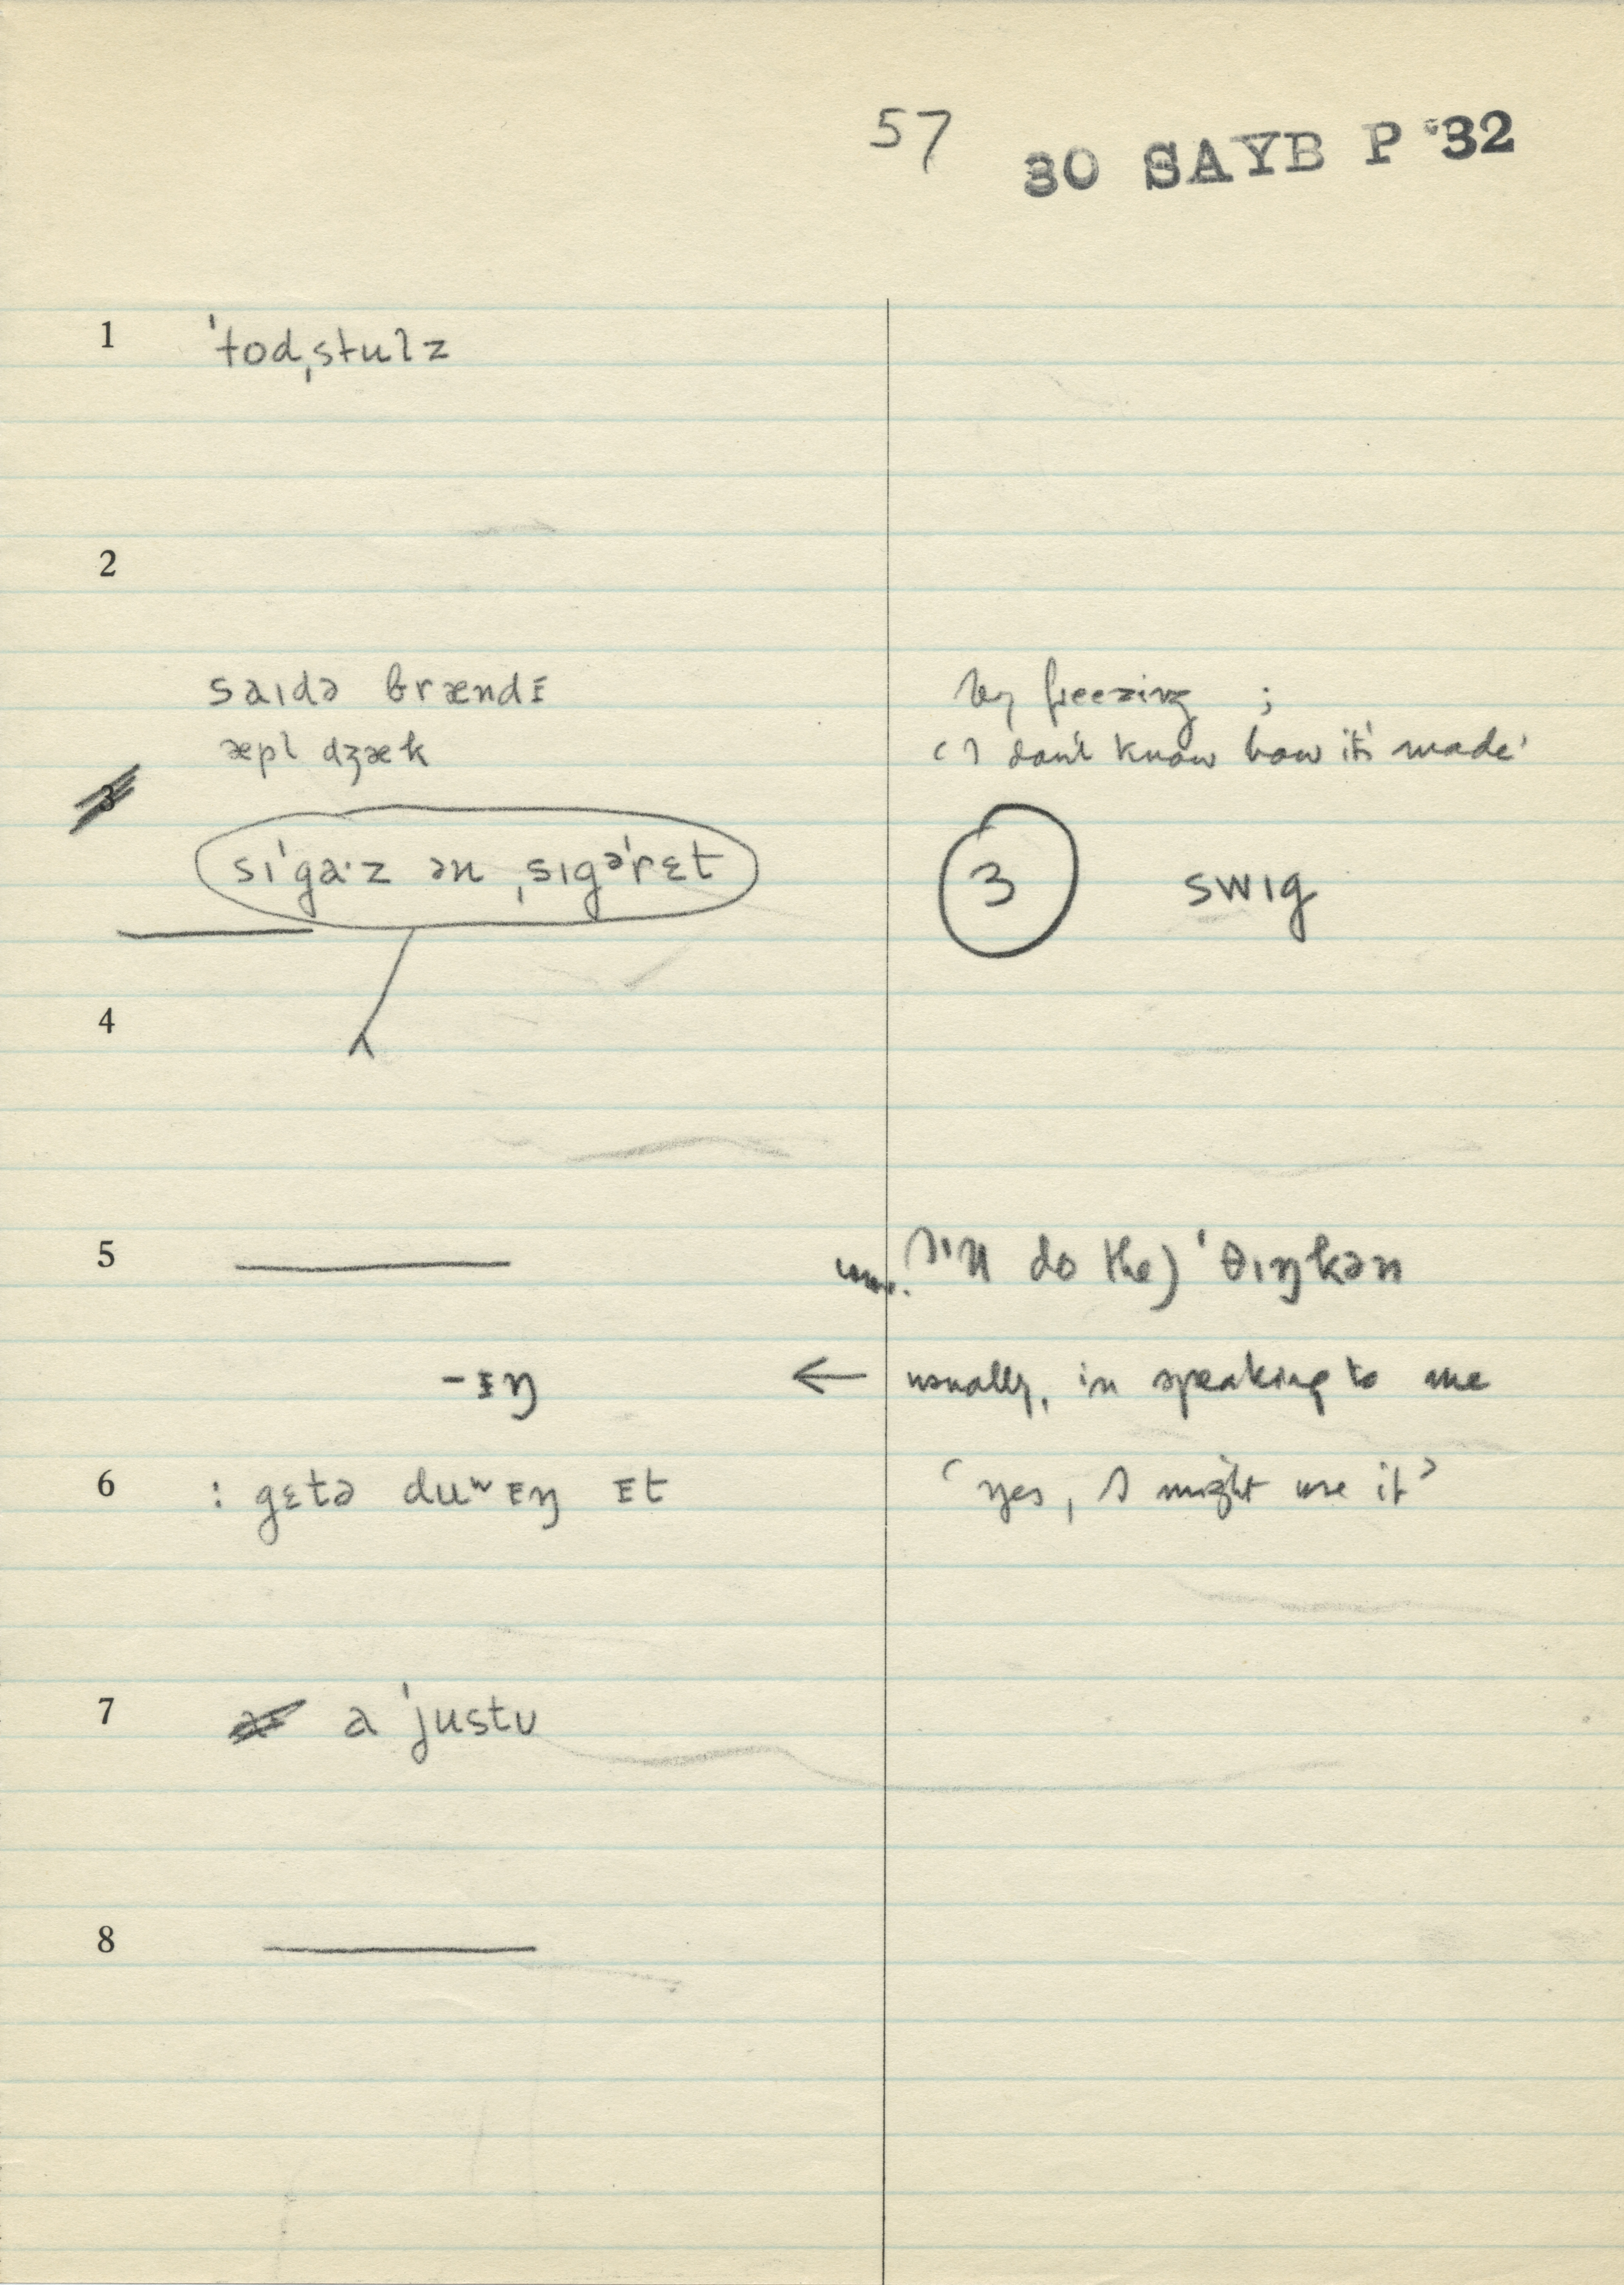 57 30 SAYB P '32
1 ˈtodˌstulz
2
saɪdə brændɪ by freezing ;
æpl dʒæk 'I don't know how it's made'
3
sɪˈga·z ən ˌsɪgəˈrɛt 3 swɪg
4
5 (I'll do the) ˈθɪŋkən
-ɪŋ ← usually, in speaking to me
6 : gɛtə duʷɪŋ ɪt 'yes, I might use it'
7 a ˈjustu
8